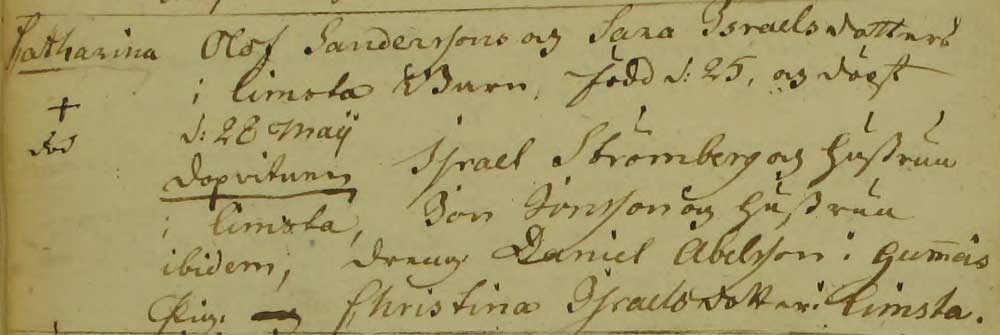 Catharina Olof Sanderssons og Sara Israelsdotters
i Limsta Barn, född d: 25, og döpt
+ d: 28 Maij
död
Dopvitnen Israel Strömberg og Hustrun
i Limsta, Jon Jonsson og Hustrun
ibidem, Dreng. Daniel Abelsson i Gummås
Pig. Christina Israelsdotter i Limsta.